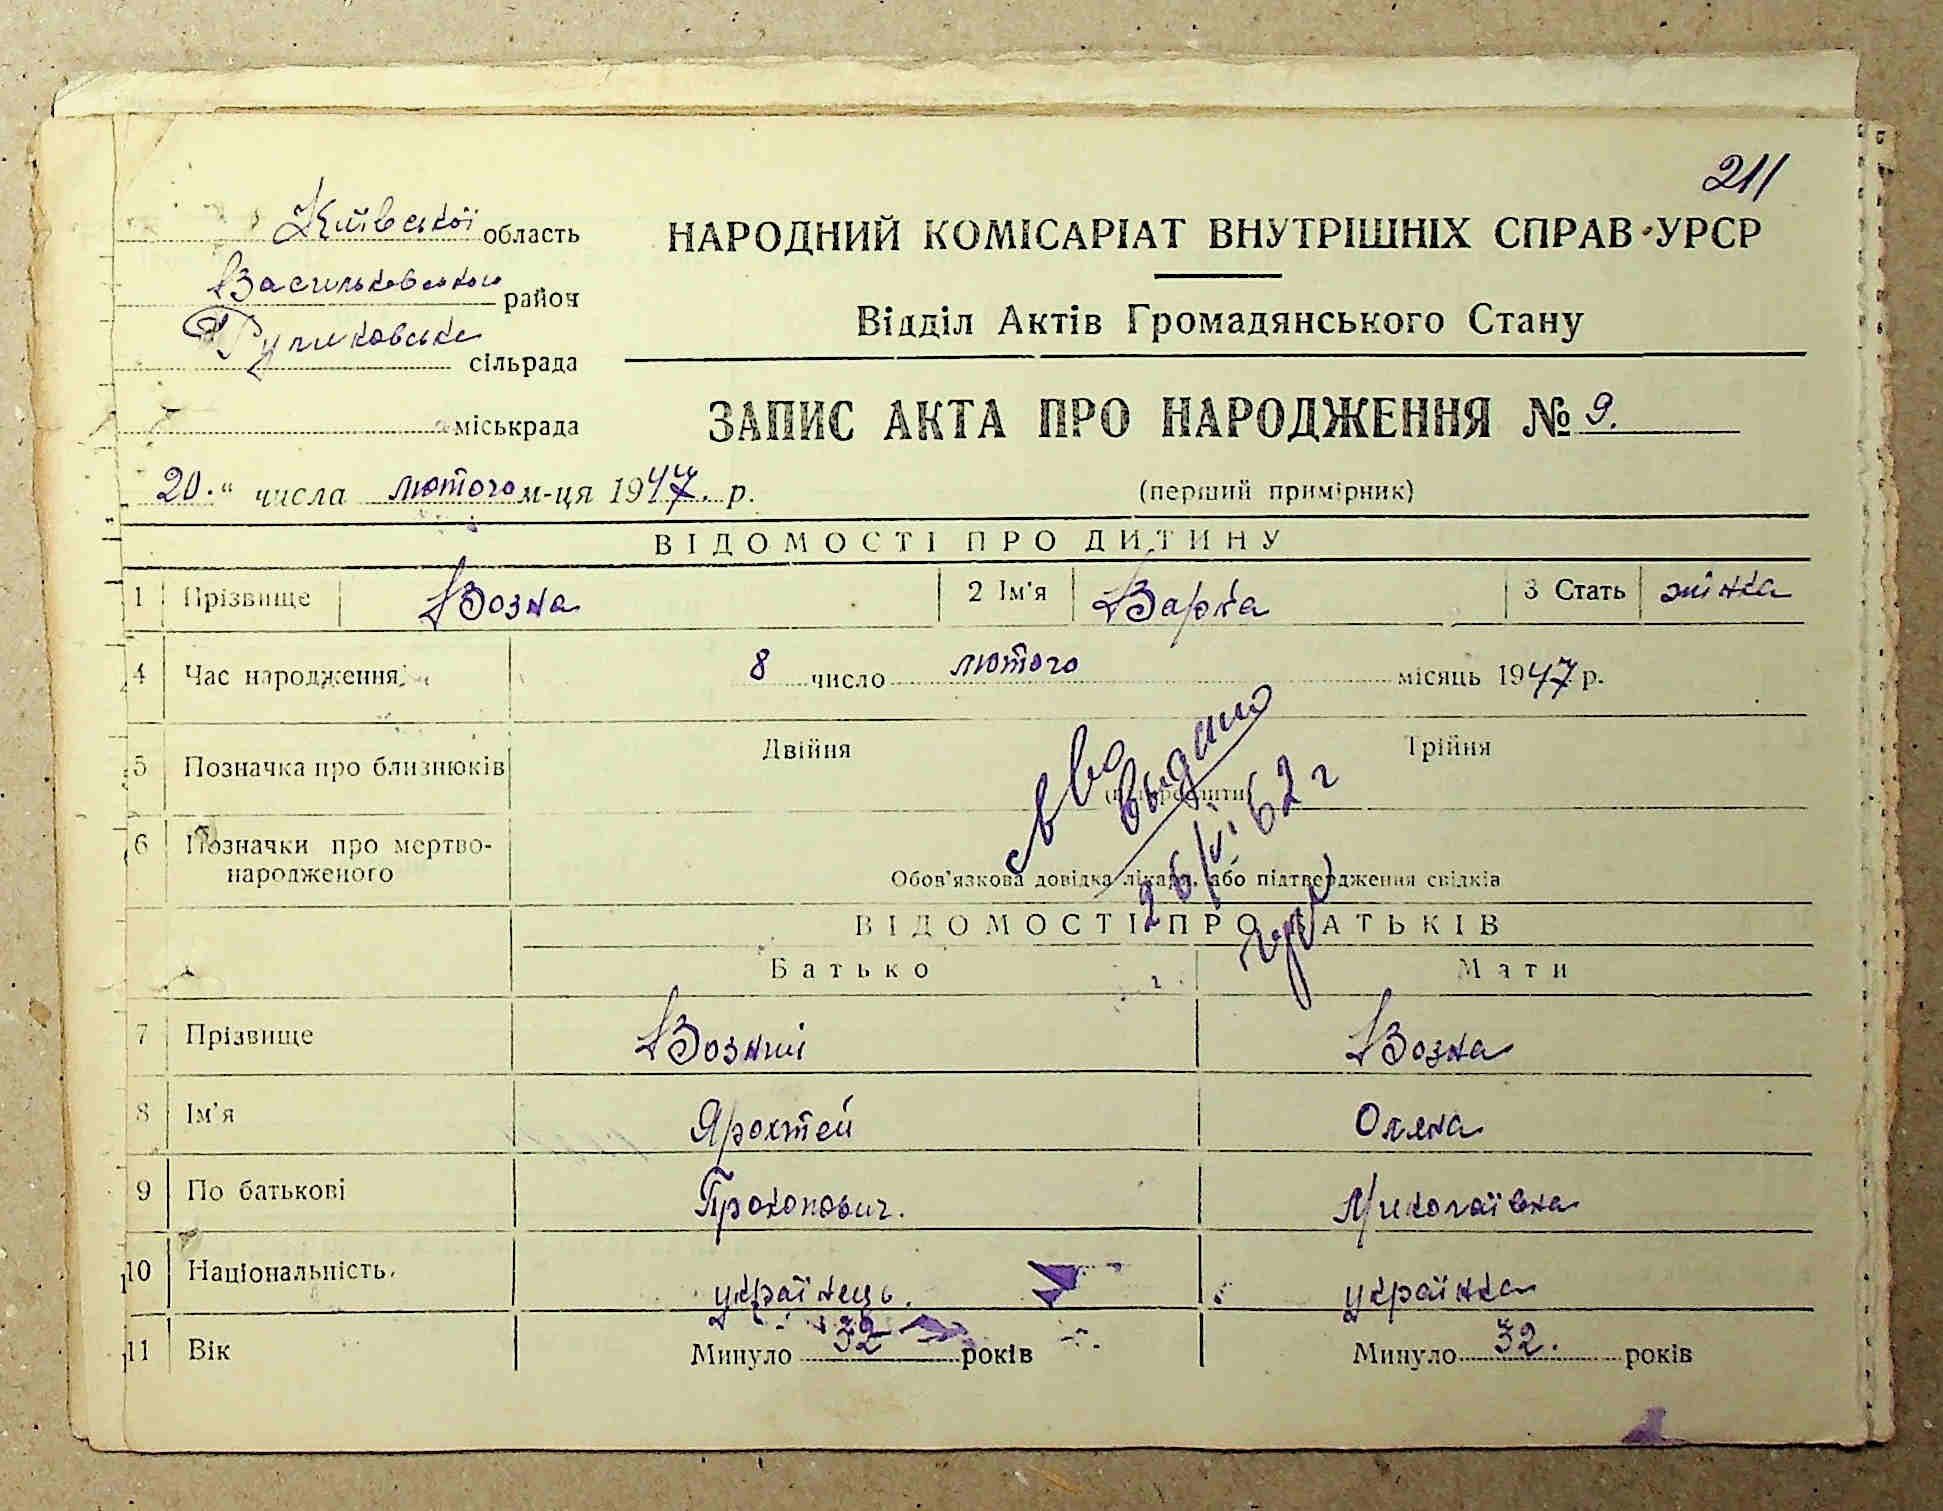 211
Київської область
Васильковського район
сільрада
міськрада
НАРОДНИЙ КОМІСАРІАТ ВНУТРІШНІХ СПРАВ УРСР
Відділ Актів Громадянського Стану
ЗАПИС АКТА ПРО НАРОДЖЕННЯ № 9.
20." числа лютого м-ця 1947. р.
(перший примірник)
ВІДОМОСТІ ПРО ДИТИНУ
1 Прізвище Возна 2 Ім'я Варка 3 Стать жінка
4 Час народження 8 число лютого місяць 1947 р.
5 Позначка про близнюків Двійня Трійня
6 Позначки про мертво-
народженого
Обов'язкова довідка лікаря, або підтвердження свідків
с во выдано
26/VI 62 г
ВІДОМОСТІ ПРО БАТЬКІВ
Батько Мати
7 Прізвище Возний Возна
8 Ім'я Ярохтей Оляна
9 По батькові Прокопович. Миколаївна
10 Національність українець. українка
11 Вік Минуло 32 років Минуло 32. років